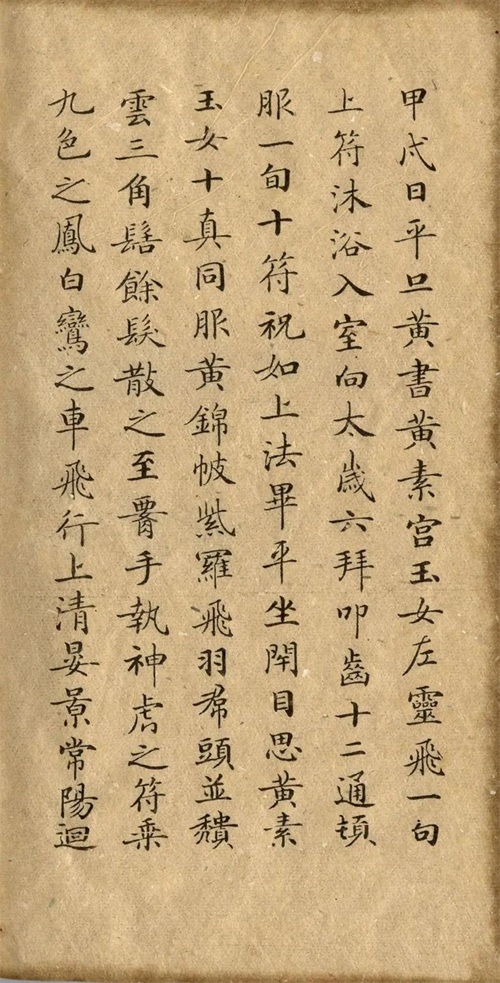 甲戌日平旦黃書黃素宮玉女左靈飛一旬
上符沐浴入室向太歲六拜叩齒十二通頓
服一旬十符祝如上法畢平坐閇目思黃素
玉女十真同服黃錦帔紫羅飛羽帬頭並穨
雲三角髻餘髮散之至腰手執神虎之符乗
九色之鳳白鸞之車飛行上清晏景常陽迴